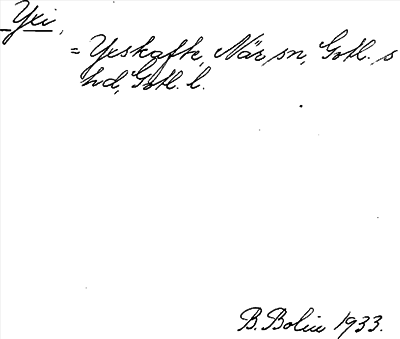 Yxi,
= Yxskaft, När, sn, Gotl., s
hd, Gotl. l.
B. Bolin 1933.